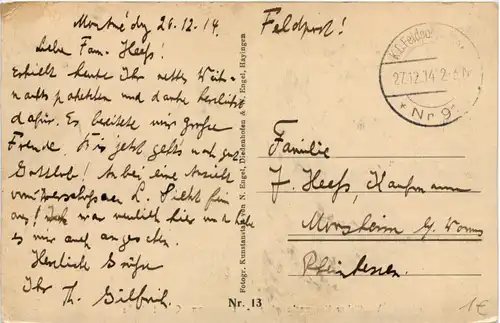 26.12.14.
Liebe Fam. Heeß!
Erhielt heute Ihr nettes Weih-
nachtspaketchen und danke herzlichst
dafür. Es bereitete mir große
Freude. Bis jetzt geht's noch gut
Gottlob! Anbei eine Ansicht
vom L. Sieht fein
aus! war neulich hier und habe
es mir auch angesehen.
Herzliche Grüße
Ihr Th. Gilfrich.
Feldpost!
K.D. Feldpost
27.12.14 2-3 N
* Nr 9
Familie
J. Heeß, Kaufmann
Monsheim b/ Worms
Rheinhessen.
Fotogr. Kunstanstalt von N. Engel, Diedenhofen & N. Engel, Hayingen
Nr. 13
1€